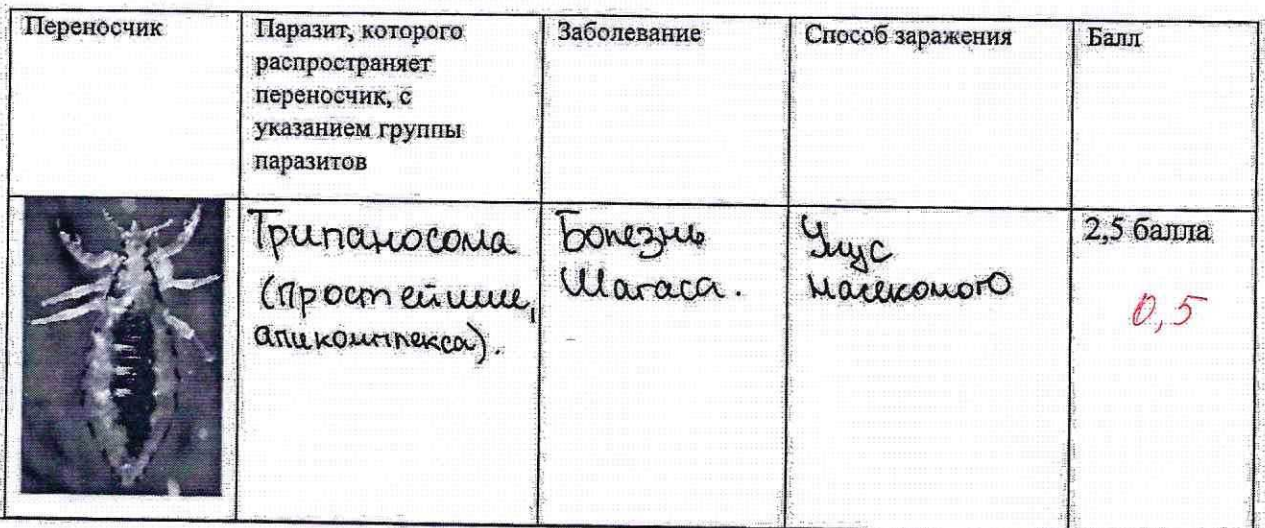 Переносчик
Паразит, которого
распространяет
переносчик, с
указанием группы
паразитов
Заболевание
Способ заражения
Балл
Трипаносома
(Простейшие,
апикомплекса).
Болезнь
Шагаса.
Укус
насекомого
2,5 балла
0,5